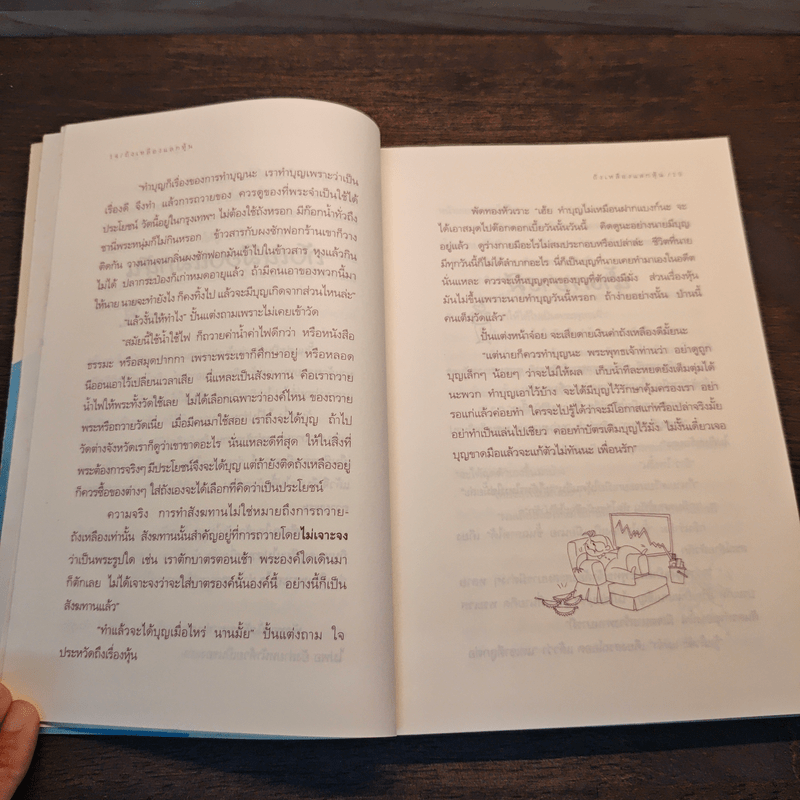 ถังเหลืองแลกหุ้น
"ทำบุญก็เรื่องของการทำบุญนะ เราทำบุญเพราะว่าเป็น
เรื่องดี จึงทำ แล้วการถวายของ ควรดูของที่พระจำเป็นใช้ได้
ประโยชน์ วัดนี้อยู่ในกรุงเทพฯ ไม่ต้องใช้ถังหรอก มีก๊อกน้ำทั่วถึง
ชานีพระหนุ่มก็ไม่กินหรอก ข้าวสารกับผงซักฟอกร้านเขาก็วาง
ติดกัน วางนานจนกลิ่นผงซักฟอกมันเข้าไปในข้าวสาร หุงแล้วกิน
ไม่ได้ ปลากระป๋องก็เก่าหมดอายุแล้ว ถ้ามีคนเอาของพวกนี้มา
ให้นาย นายจะทำยังไง ก็คงทิ้งไป แล้วจะมีบุญเกิดจากส่วนไหนล่ะ"
"แล้วงั้นให้ทำไง" ปั้นแต่งถามเพราะไม่เคยเข้าวัด
"สมัยนี้ใช้น้ำใช้ไฟ ก็ถวายค่าน้ำค่าไฟดีกว่า หรือหนังสือ
ธรรมะ หรือสมุดปากกา เพราะพระเขาก็ศึกษาอยู่ หรือหลอด
นีออนเอาไว้เปลี่ยนเวลาเสีย นี่แหละเป็นสังฆทาน คือเราถวาย
น้ำไฟให้พระทั้งวัดใช้เลย ไม่ได้เลือกเฉพาะว่าองค์ไหน ของถวาย
พระหรือถวายวัดเนี่ย เมื่อมีคนมาใช้สอย เราถึงจะได้บุญ ถ้าไป
วัดต่างจังหวัดเราก็ดูว่าเขาขาดอะไร นั่นแหละดีที่สุด ให้ในสิ่งที่
พระต้องการจริงๆ มีประโยชน์จึงจะได้บุญ แต่ถ้ายังติดถังเหลืองอยู่
ก็ควรซื้อของต่างๆ ใส่ถังเองจะได้เลือกที่คิดว่าเป็นประโยชน์
ความจริง การทำสังฆทานไม่ใช่หมายถึงการถวาย-
ถังเหลืองเท่านั้น สังฆทานนั้นสำคัญอยู่ที่การถวายโดยไม่เจาะจง
ว่าเป็นพระรูปใด เช่น เราตักบาตรตอนเช้า พระองค์ใดเดินมา
ก็ตักเลย ไม่ได้เจาะจงว่าจะใส่บาตรองค์นั้นองค์นี้ อย่างนี้ก็เป็น
สังฆทานแล้ว"
"ทำแล้วจะได้บุญเมื่อไหร่ นานมั้ย" ปั้นแต่งถาม ใจ
ประหวัดถึงเรื่องหุ้น
ถังเหลืองแลกหุ้น
พัดทองหัวเราะ "เฮ้ย ทำบุญไม่เหมือนฝากแบงก์นะ จะ
ได้เอาสมุดไปตีอกดอกเบี้ยวันนั้นวันนี้ คิดดูนะอย่างนายมีบุญ
อยู่แล้ว ดูร่างกายมีอะไรไม่สมประกอบหรือเปล่าล่ะ ชีวิตที่นาย
มีทุกวันนี้ก็ไม่ได้ลำบากอะไร นี่ก็เป็นบุญที่นายเคยทำมาเองในอดีต
นั่นแหละ ควรจะเห็นบุญคุณของบุญที่ตัวเองมีมั่ง ส่วนเรื่องหุ้น
มันไม่ขึ้นเพราะนายทำบุญวันนี้หรอก ถ้าง่ายอย่างนั้น ป่านนี้
คนเต็มวัดแล้ว"
ปั้นแต่งหน้าจ๋อย จะเสียดายเงินค่าถังเหลืองดีมั้ยนะ
"แต่นายก็ควรทำบุญนะ พระพุทธเจ้าท่านว่า อย่าดูถูก
บุญเล็กๆ น้อยๆ ว่าจะไม่ให้ผล เก็บน้ำทีละหยดยังเต็มตุ่มได้
นะพวก ทำบุญเอาไว้บ้าง จะได้มีบุญไว้รักษาคุ้มครองเรา อย่า
รอแก่แล้วค่อยทำ ใครจะไปรู้ได้ว่าจะมีโอกาสแก่หรือเปล่าจริงมั้ย
อย่าทำเป็นเล่นไปเชียว คอยทำบัตรเติมบุญไว้มั่ง ไม่งั้นเดี๋ยวเจอ
บุญขาดมือแล้วจะแก้ตัวไม่ทันนะ เพื่อนรัก"